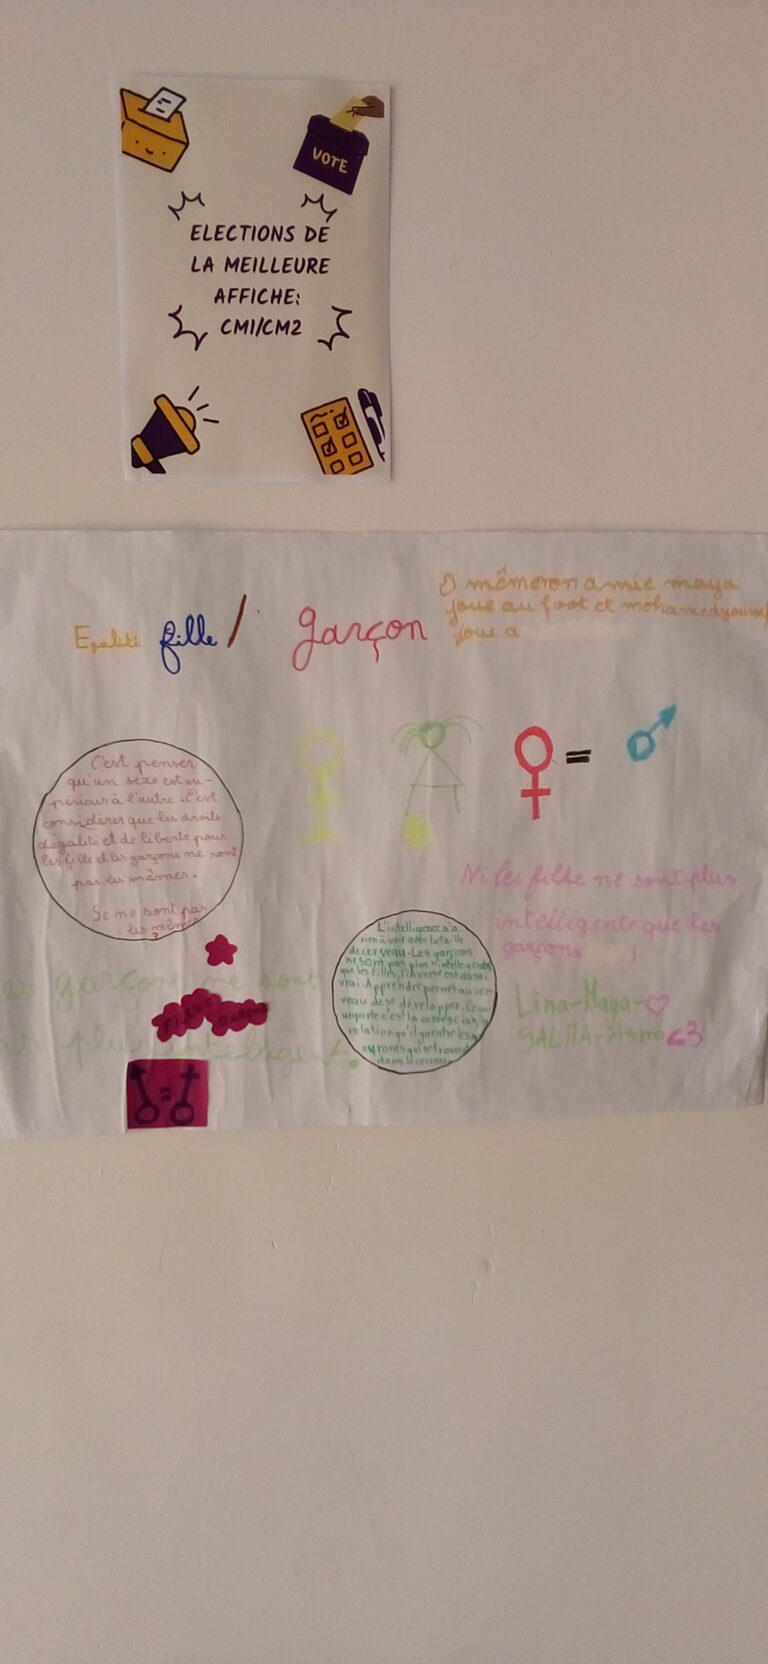 VOTE
ELECTIONS DE
LA MEILLEURE
AFFICHE:
CM1/CM2
mêmeron amie maya
joue au foot et mohamedyoussef
joue a
Egalité fille / garçon
C'est penser
qu'un sexe est su-
périeur à l'autre. C'est
considérer que les droits
dégalité et de liberté pour
les fille et les garçons ne sont
pas les mêmes.
Se ne sont pas
les mêmes
?
=
Ni les fille ne sont plus
intelligente que les
garçons !
L'intelligence n'a
rien à voir avec la taille
de cerveau. Les garçons
ne sont pas plus intelligents
que les filles, l'inverse est aussi
vrai. Apprendre permet au cer-
veau de se développer. Ce qui
importe c'est la
relation qu'il y a entre les
qui se trouve
dans le cerveau
garçon ne sont
plus intelligent.
Fille = Garçon
=
Lina-Maya-♡
SALMA-Asma<3